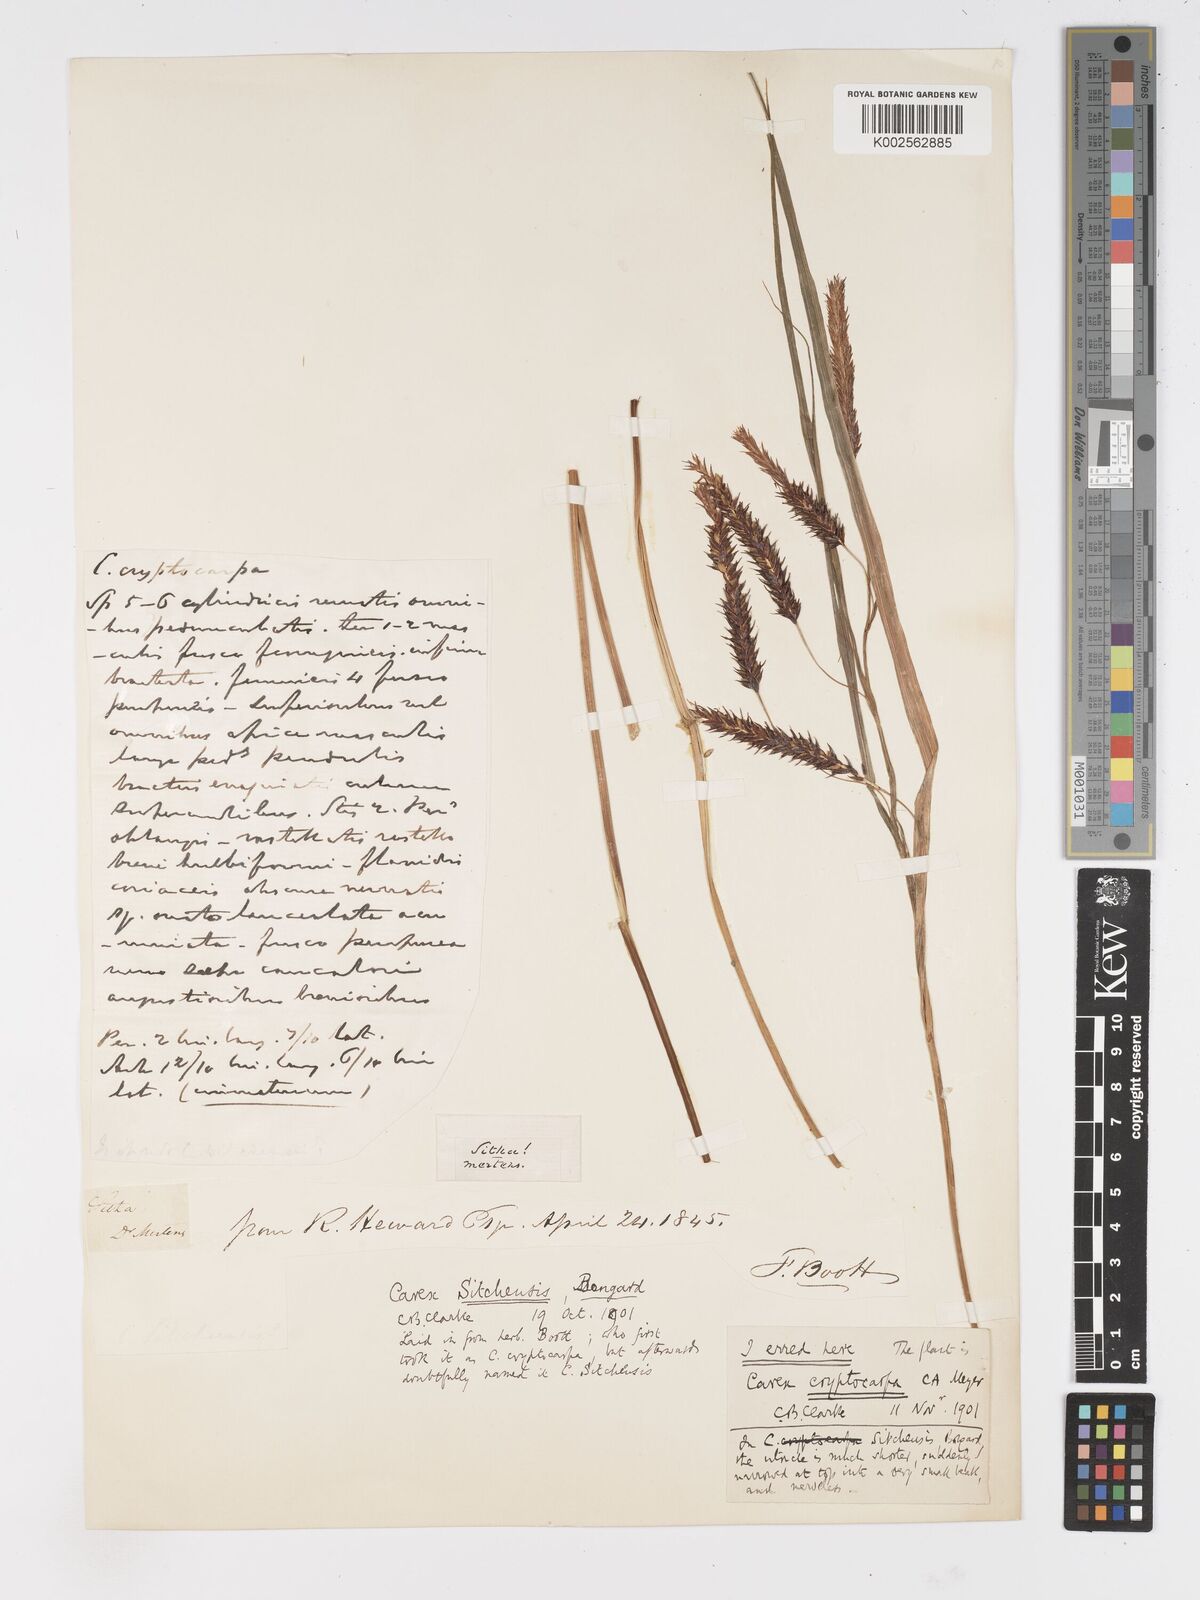 ROYAL BOTANIC GARDENS KEW
K002562885
C. cryptocarpa
Sp 5-6 cylindricis remotis omni-
-bus pedunculatis. ter 1-2 mas
-culis fusco ferrugineis. infima
bracteata. femineis 4 fusco
purpureis - superioribus vel
omnibus apice masculis
longe pedˢ pendulis
bracteis evaginatis culmum
superantibus. Stis 2. Perˢ
oblongis - rostellatis rostello
brevi - flavidis
coriaceis obscure nervatis
sq. ovato lanceolata acu
-minata - fusco purpurea
nervo concolori
angustioribus brevioribus
Per. 2 lin. long. 7/10 lat.
12/10 lin. long. 6/10 lin
lat. (immaturum)
Sitka!
Mertens.
Sitka
Dr Mertens
from R. Heward Esqr. April 24. 1845.
F. Boott
Carex Sitchensis, Bongard
C.B. Clarke 19 Oct. 1901
Laid in from herb. Boott; who first
took it as C. cryptocarpa, but afterwards
doubtfully named it C. Sitchensis
I erred here The plant is
Carex cryptocarpa CA Meyer
C.B. Clarke 11 Novʳ. 1901
In C. cryptocarpa Sitchensis Bongard,
the utricle is much shorter, suddenly
narrowed at top into a very small beak,
and nerveless -
inches
centimetres
Density
Don Williams
M001031
Kew
Royal Botanic Gardens
copyright reserved
0 1 2 3 4 5 6 7 8 9 10
cm